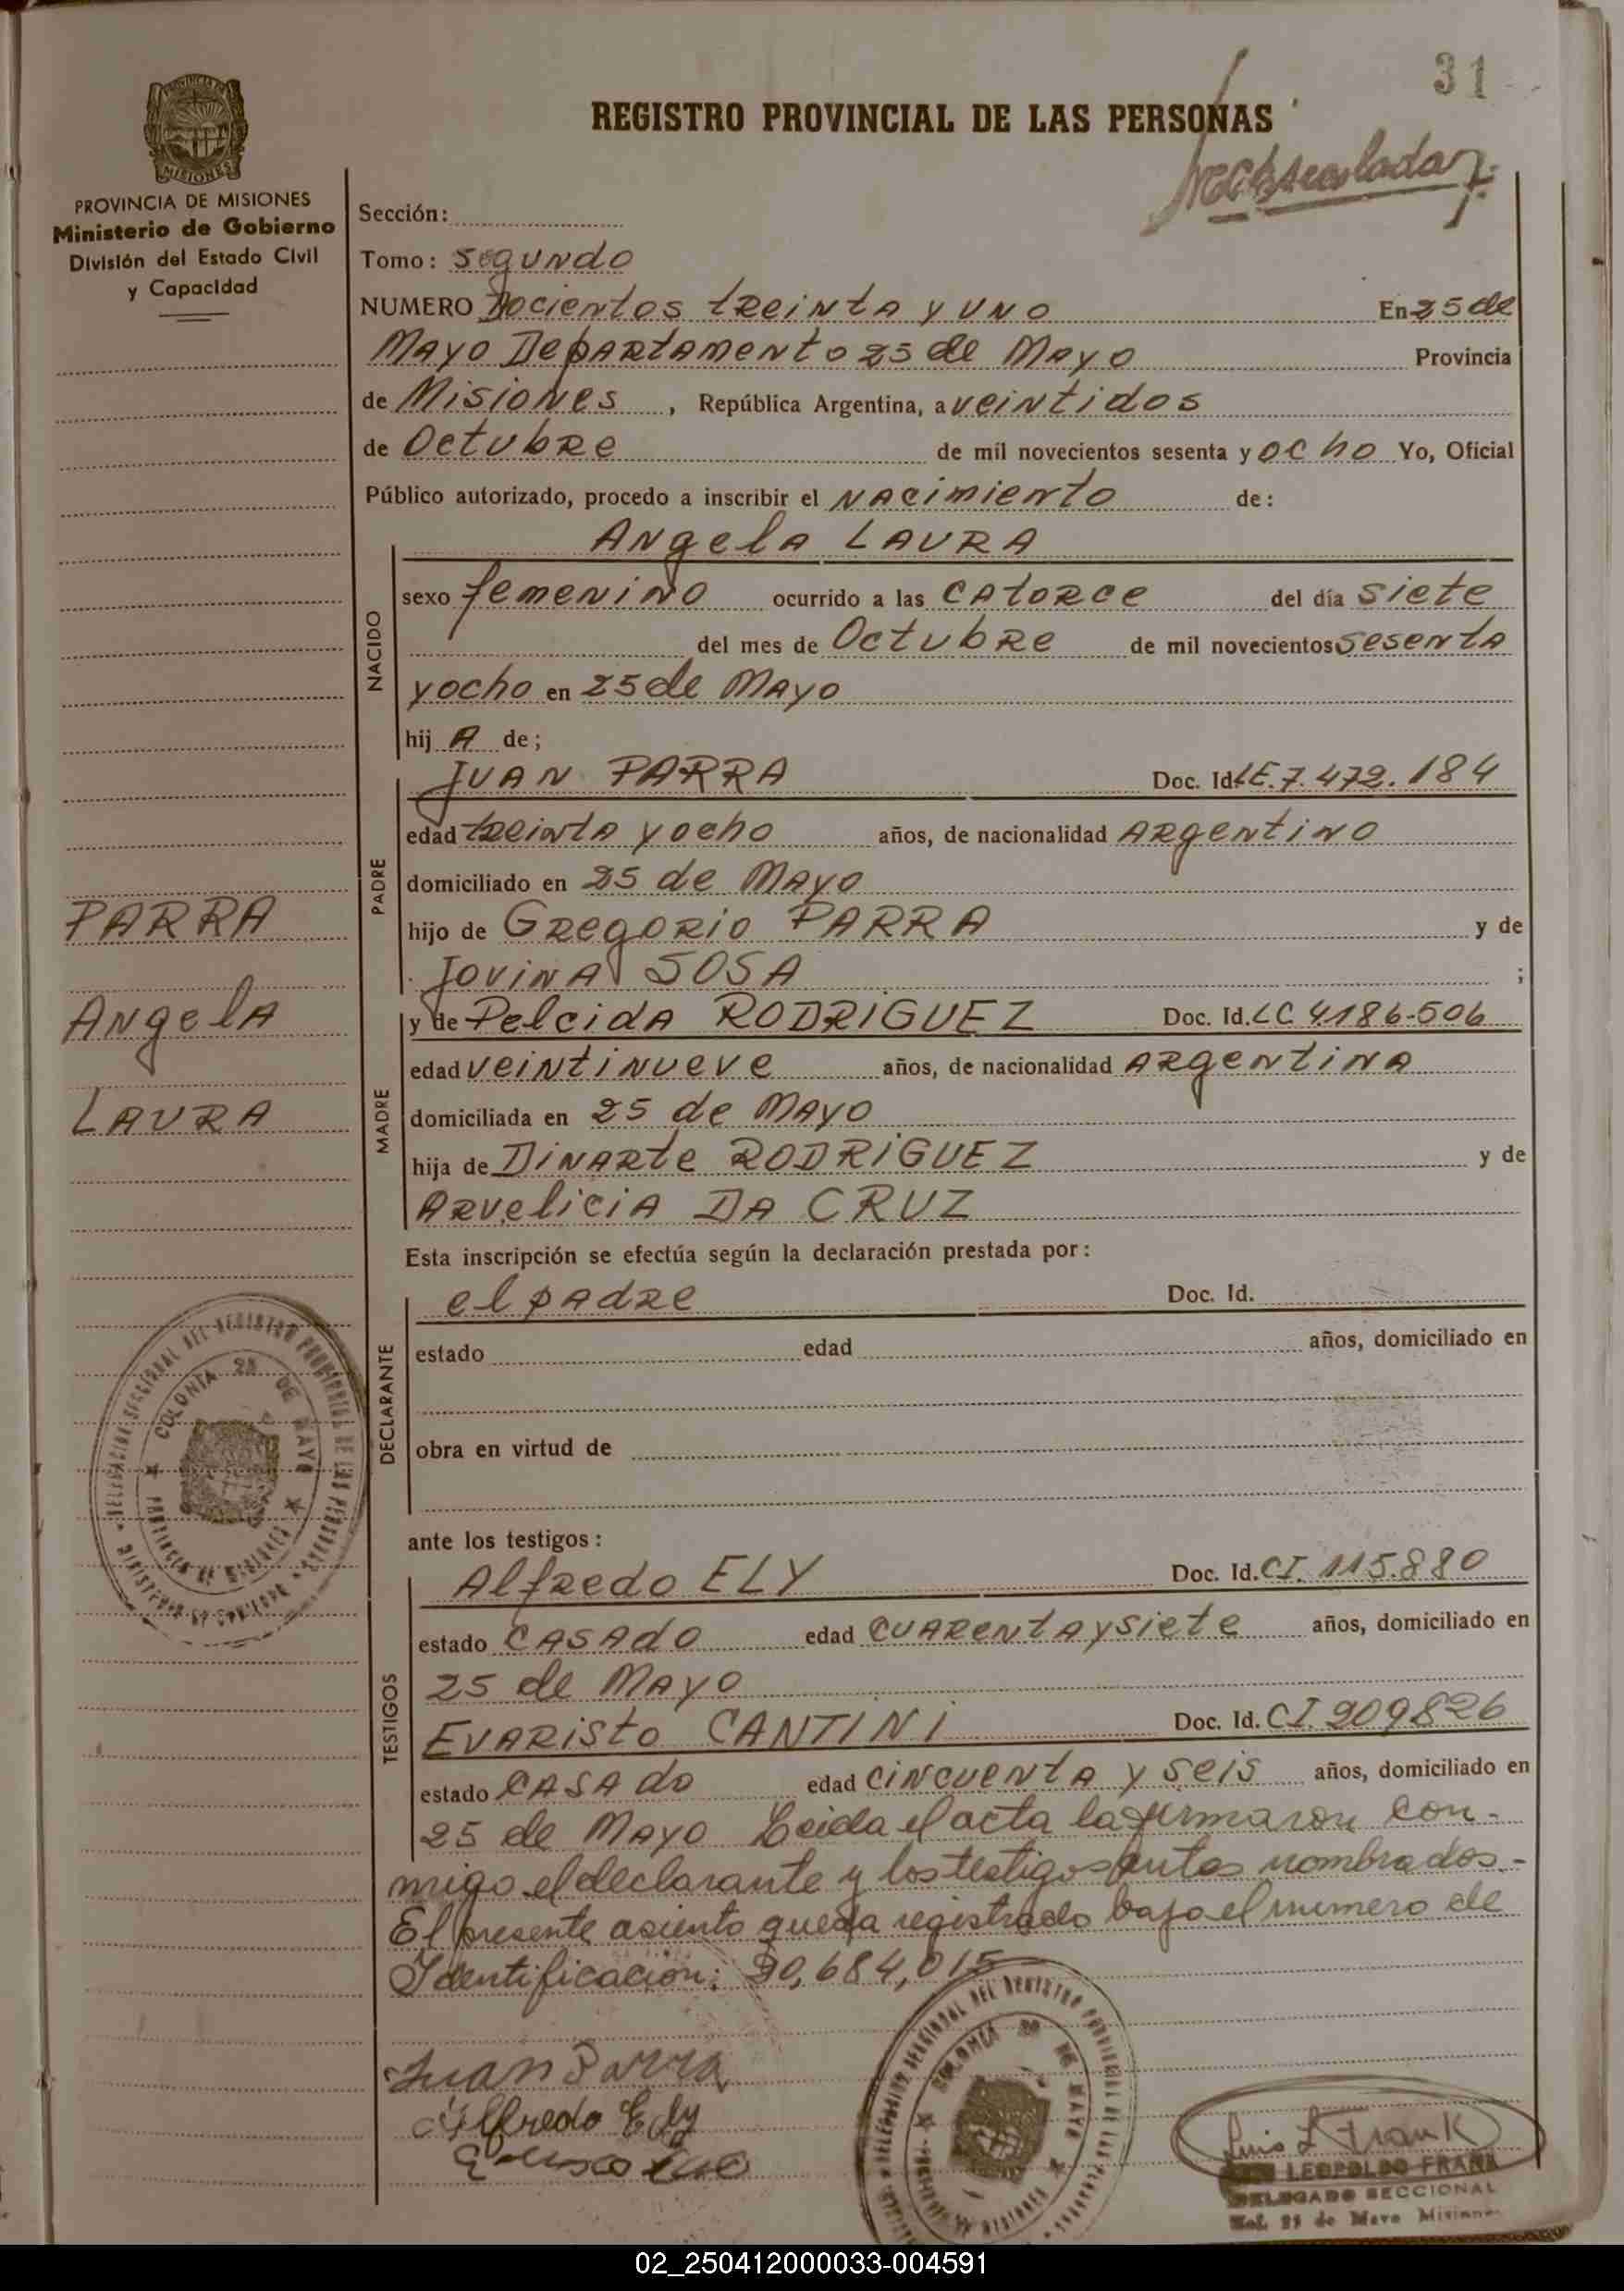 31
REGISTRO PROVINCIAL DE LAS PERSONAS
PROVINCIA DE MISIONES
Ministerio de Gobierno
División del Estado Civil
y Capacidad
Sección:
Tomo: Segundo
NUMERO Docientos treinta y uno En 25 de
Mayo Departamento 25 de Mayo Provincia
de Misiones, República Argentina, a veintidos
de Octubre de mil novecientos sesenta y ocho Yo, Oficial
Público autorizado, procedo a inscribir el nacimiento de:
Angela LAURA
NACIDO
sexo femenino ocurrido a las catorce del día siete
del mes de Octubre de mil novecientos sesenta
y ocho en 25 de Mayo
hij A de;
PADRE
Juan PARRA Doc. Id. LE. 7.472.184
edad treinta y ocho años, de nacionalidad Argentino
domiciliado en 25 de Mayo
hijo de Gregorio PARRA y de
Jovina SOSA ;
MADRE
y de Pelcida RODRIGUEZ Doc. Id. LC 4.186-506
edad veintinueve años, de nacionalidad Argentina
domiciliada en 25 de Mayo
hija de Dinarte RODRIGUEZ y de
Arvelicia DA CRUZ
PARRA
Angela
LAURA
Esta inscripción se efectúa según la declaración prestada por:
DECLARANTE
el padre Doc. Id.
estado edad años, domiciliado en
obra en virtud de
ante los testigos:
TESTIGOS
Alfredo ELY Doc. Id. CI. 115.880
estado CASAdo edad cuarenta y siete años, domiciliado en
25 de Mayo
Evaristo CANTINI Doc. Id. CI. 909826
estado CASAdo edad cincuenta y seis años, domiciliado en
25 de Mayo Leida el acta la firmaron con-
migo el declarante y los testigos antes nombrados.-
El presente asiento queda registrado bajo el numero de
Identificación: 20,684,015
Juan Parra
Alfredo Ely
COLONIA 25 DE MAYO
PROVINCIA DE MISIONES
COLONIA 25 DE MAYO
Luis L Frank
LEOPOLDO FRANK
DELEGADO SECCIONAL
Col. 25 de Mayo Misiones
02_250412000033-004591